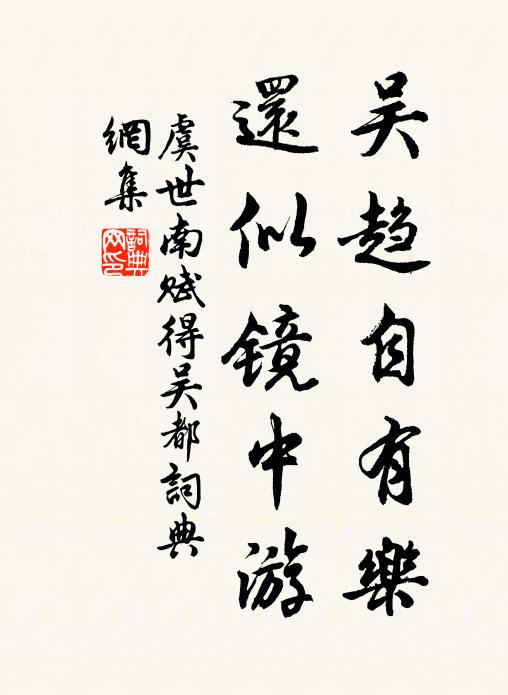 吴趋自有樂
還似镜中游
虞世南赋得吴都詞典
網集
詞典網印